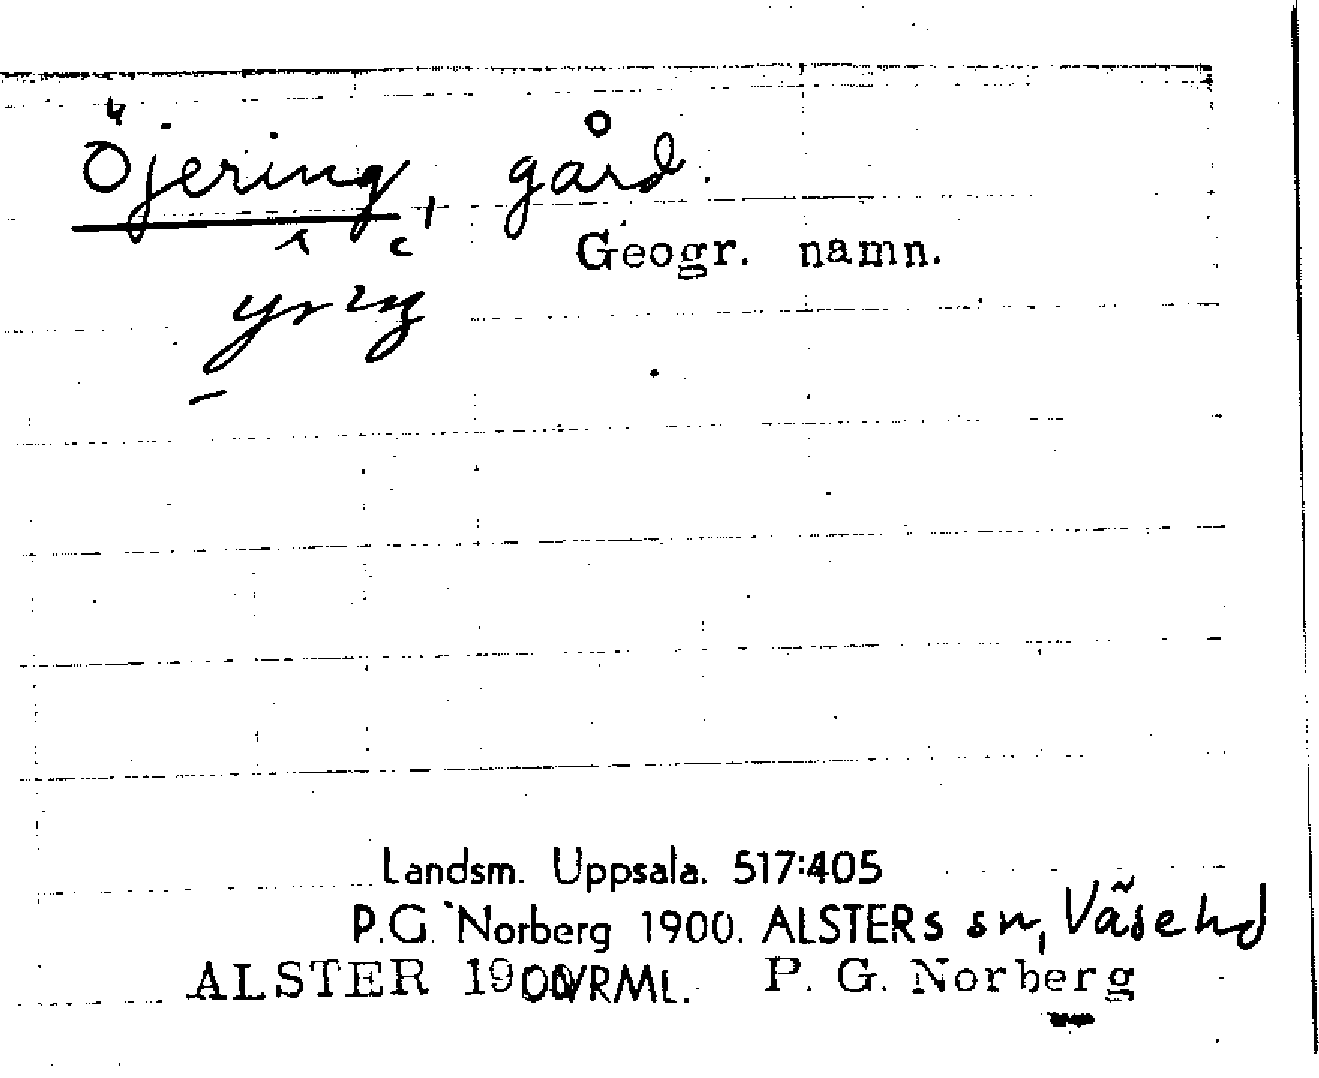 Öjering, gård.
Geogr. namn.
Landsm. Uppsala. 517:405
P.G. Norberg 1900. ALSTERS sn, Väsehd
ALSTER 1900 VRML. P. G. Norberg